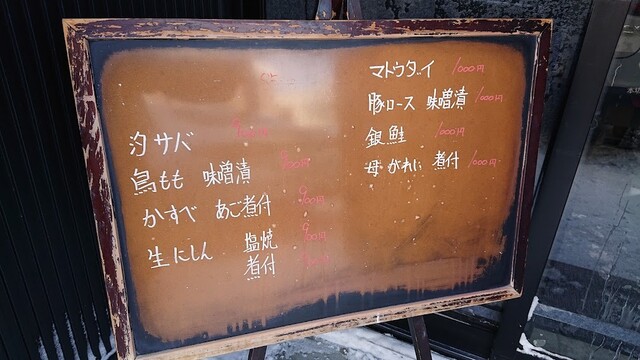 汐サバ 900円
鳥もも 味噌漬 900円
かすべ あご煮付 900円
生にしん 塩焼 900円
煮付
マトウダイ 1000円
豚ロース 味噌漬 1000円
銀鮭 1000円
母がれい 煮付 1000円